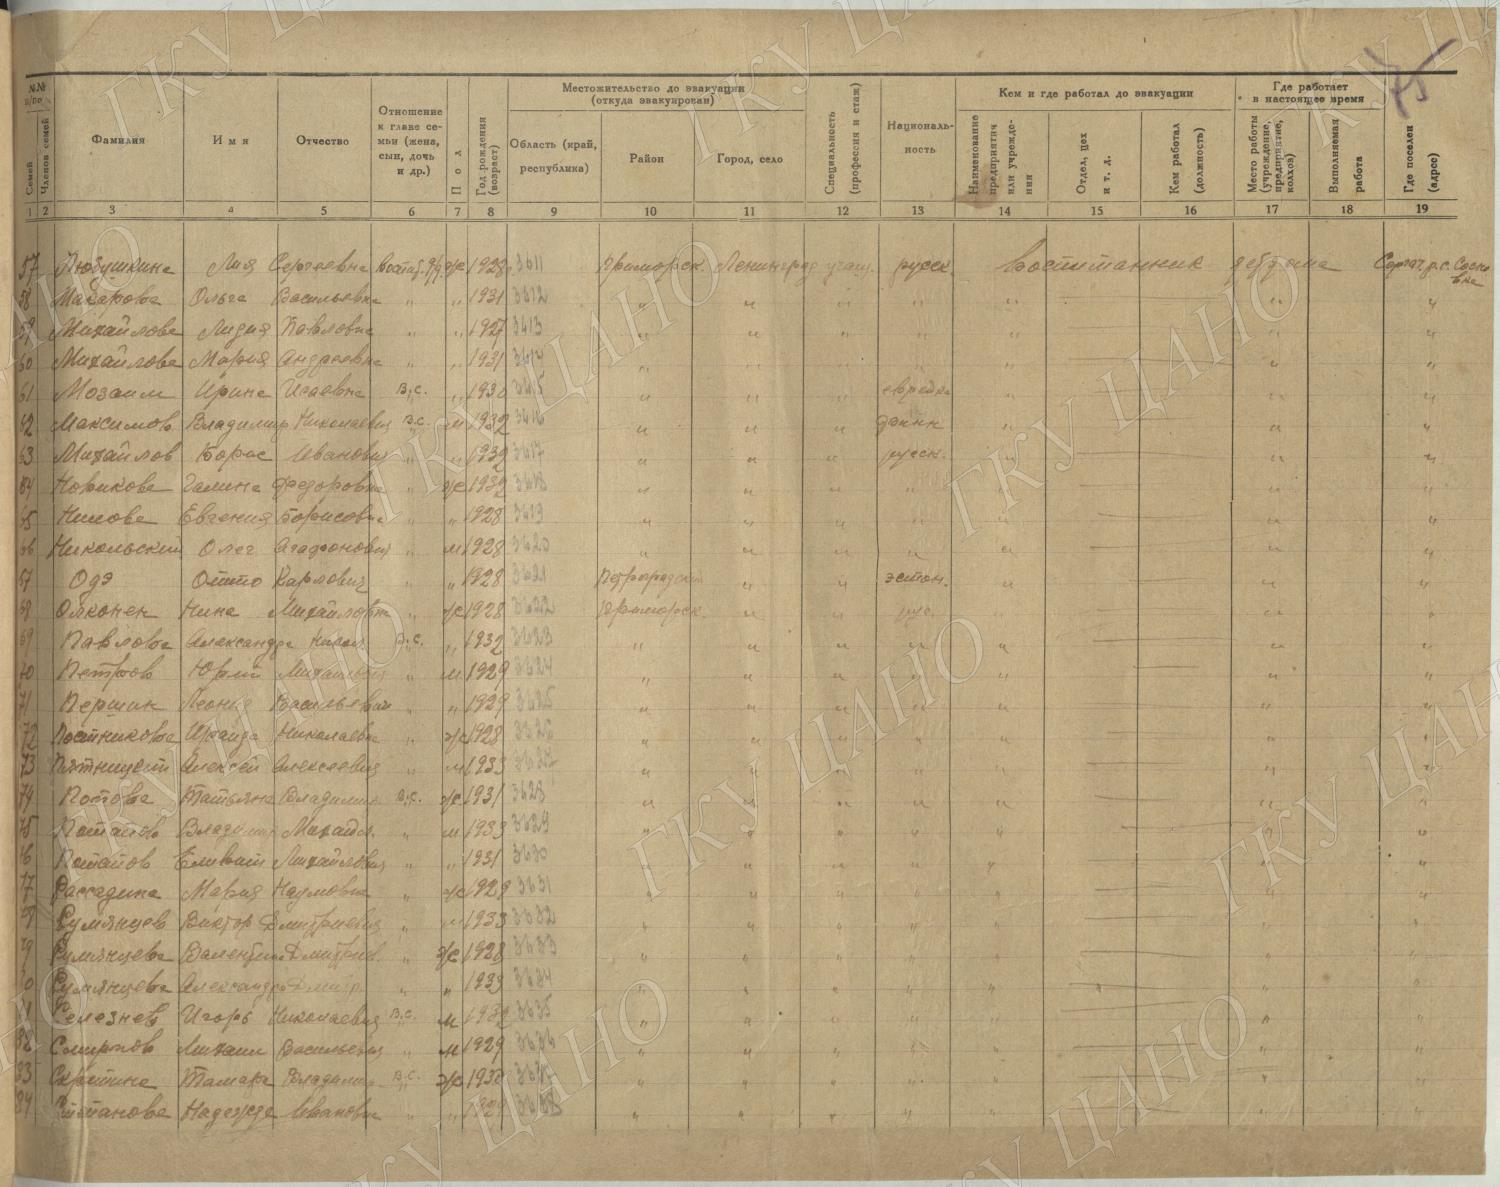 75
№№ п/по
Семей
Членов семей
Фамилия
Имя
Отчество
Отношение к главе семьи (жена, сын, дочь и др.)
Пол
Год рождения (возраст)
Местожительство до эвакуации (откуда эвакуирован)
Область (край, республика)
Район
Город, село
Специальность (профессия и стаж)
Националь-ность
Кем и где работал до эвакуации
Наименование предприятия или учрежде-ния
Отдел, цех и т. д.
Кем работал (должность)
Где работает в настоящее время
Место работы (учреждение, предприятие, колхоз)
Выполняемая работа
Где поселен (адрес)
1 2 3 4 5 6 7 8 9 10 11 12 13 14 15 16 17 18 19
57 Любушкина Лия Сергеевна Воспит. д/д ж 1928 3611 Приморск. Ленинград учащ. русск. Воспитанник детдома Сергач р.с. Сосновка
58 Макарова Ольга Васильевна " " 1931 3612 " " " " " " "
59 Михайлова Лидия Павловна " " 1927 3613 " " " " " " "
60 Михайлова Мария Андреевна " " 1931 3614 " " " " " " "
61 Мозаим Ирина Исаевна В.с. " 1930 3615 " " " еврейка " " "
62 Максимов Владимир Николаевич В.с. м 1932 3616 " " " " " "
63 Михайлов Борис Иванович " " 1932 3617 " " " русск. " " "
64 Новикова Галина Федоровна " ж 1932 3618 " " " " " " "
65 Нилова Евгения Борисовна " " 1928 3619 " " " " " " "
66 Никольский Олег Агафонович " м 1928 3620 " " " " " " "
67 Одэ Отто Карлович " " 1928 3621 Петроградский " " эстон. " " "
68 Олконен Нина Михайловна " ж 1928 3622 Приморск. " " рус. " " "
69 Павлова Александра Никол. В.с. " 1932 3623 " " " " " " "
70 Петров Юрий Михайлович " м 1929 3624 " " " " " " "
71 Першин Леонид Васильевич " " 1929 3625 " " " " " " "
72 Постникова Ираида Николаевна " ж 1928 3626 " " " " " " "
73 Пятницкий Алексей Алексеевич " м 1933 3627 " " " " " " "
74 Попова Татьяна Владимир. В.с. ж 1931 3628 " " " " " " "
75 Потапов Владимир Михайл. " м 1933 3629 " " " " " " "
76 Потапов Михайлович " " 1931 3630 " " " " " " "
77 Рассадина Мария Наумовна " ж 1929 3631 " " " " " " "
78 Румянцев Виктор Дмитриевич " м 1933 3632 " " " " " " "
79 Румянцева Валентина Дмитриев. " ж 1928 3633 " " " " " " "
80 Румянцева Александра Дмитр. " " 1933 3634 " " " " " " "
81 Селезнев Игорь Николаевич В.с. м 1932 3635 " " " " " " "
82 Смирнов Михаил Васильевич " м 1929 3636 " " " " " " "
83 Тамара Владимир. В.с. ж 3637 " " " " " " "
84 Степанова Надежда Ивановна " " 1929 3638 " " " " " " "
ГКУ ЦАНО